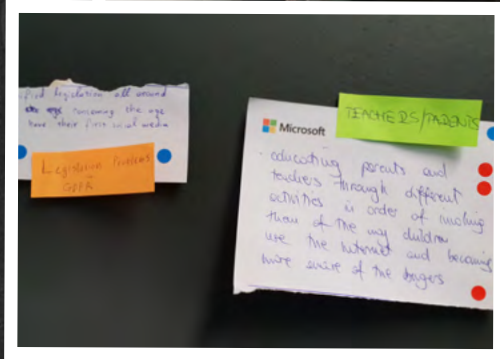 legislation all around
concerning the age
have their first social media
Legislative Problems
GDPR
TEACHERS/PARENTS
Microsoft
- educating parents and
teachers through different
activities in order of making
them of the way children
use the Internet and becoming
more aware of the dangers